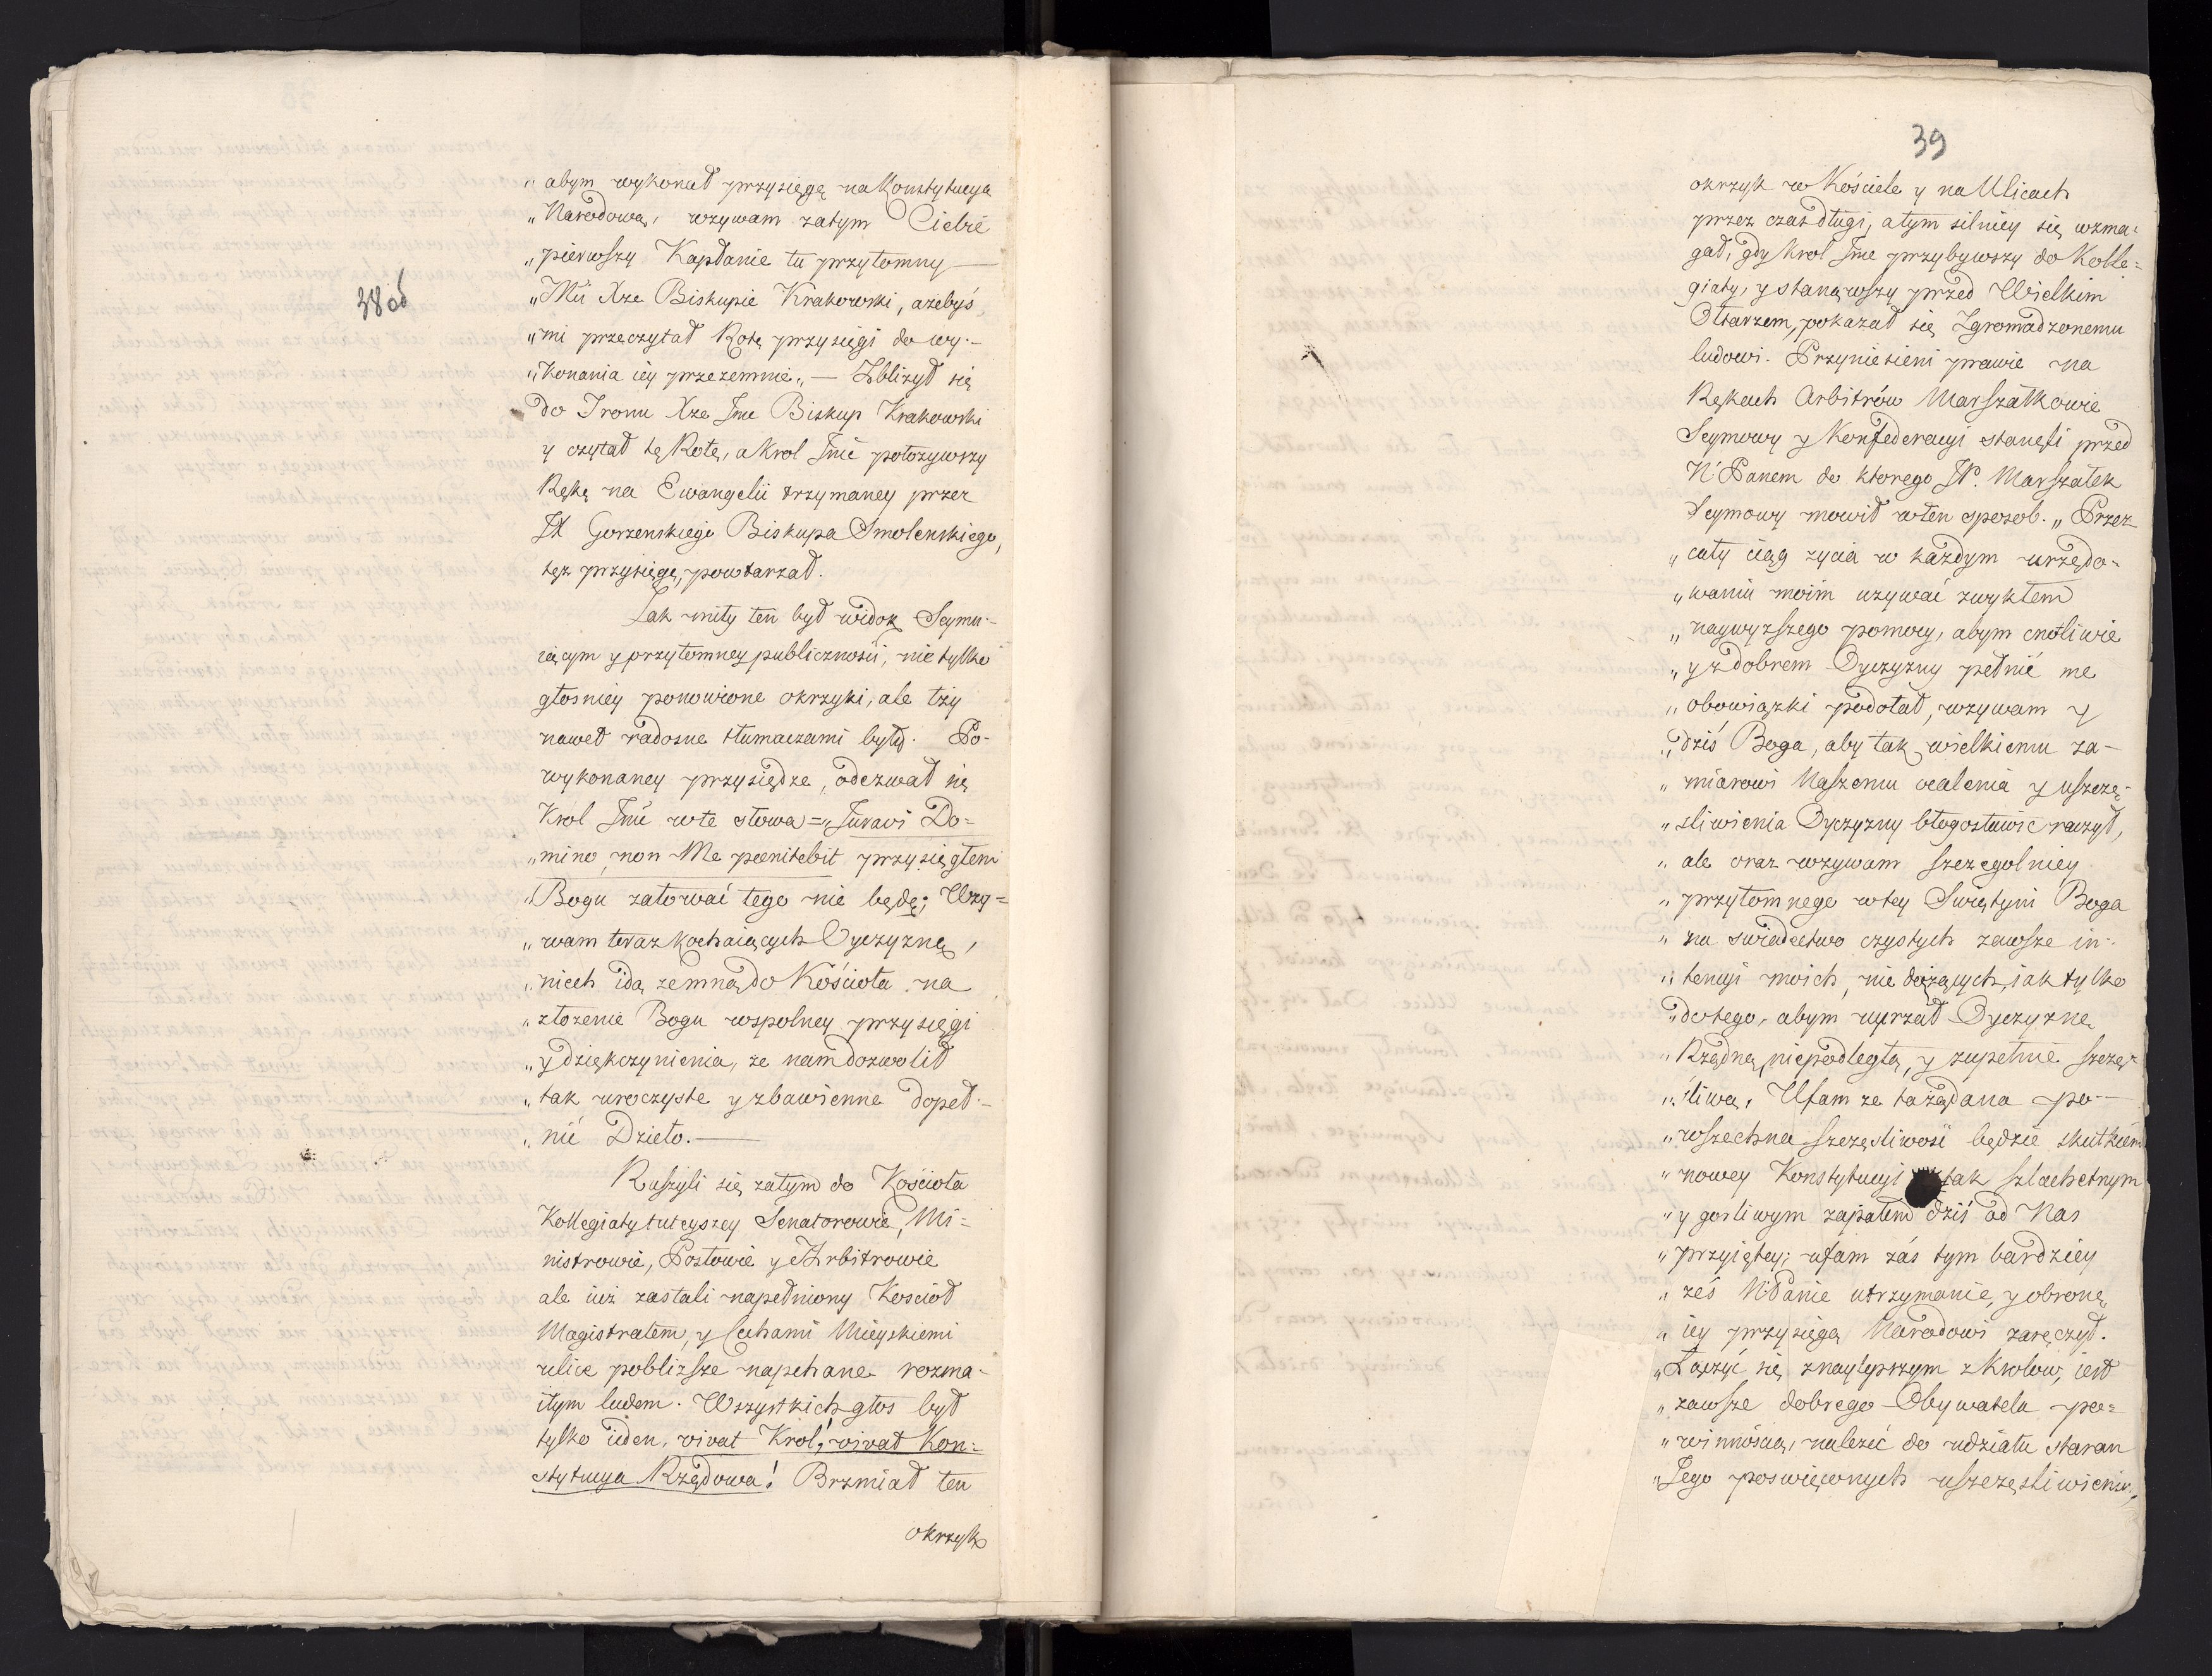 38 об
„ abym wykonał przysięgę na Konstytucyą
„ Narodową, wzywam zatym Ciebie
„ pierwszy Kapłanie tu przytomny —
„ Mci Xże Biskupie Krakowski, ażebyś
„ mi przeczytał Rotę przysięgi do wy-
„ konania iey przezemnie„ — Zbliżył się
do Tronu Xże Jmc Biskup Krakowski
y czytał tę Rotę, a Krol Jmć położywszy
Rękę na Ewangelii trzymaney przez
JX Gorzenskiego Biskupa Smolenskiego,
tęż przysięgę, powtarzał.
Jak miły ten był widok Seymu-
iącym y przytomney publiczności, nie tylko
głosniey ponowione okrzyki, ale łzy
nawet radosne tłumaczami były. Po-
wykonaney przysiędze, odezwał się
Krol Jmć w te słowa = „Juravi Do-
„ mino, non Me poenitebit przysięgłem
„ Bogu żałować tego nie będę; Wzy=
„ wam teraz kochaiących Oyczyznę,
„ niech idą zemną do Kościoła na
„ złożenie Bogu wspolney przysięgi
„ y dziękczynienia, że nam dozwolił
„ tak uroczyste y zbawienne dopeł-
„ nić Dzieło. —
Ruszyli się zatym do Kościoła
Kollegiaty tuteyszey Senatorowie, Mi=
nistrowie, Posłowie y Arbitrowie
ale iuż zastali napełniony Kościoł
Magistratem, y Cechami Mieyskiemi
ulice pobliższe napchane rozma-
itym ludem. Wszystkich głos był
tylko ieden, vivat Krol, vivat Kon=
stytucya Rządowa! Brzmiał ten
okrzyk
39
okrzyk w Kościele y na Ulicach
przez czas długi, a tym silniey się wzma=
gał, gdy Krol Jmc przybywszy do Kolle=
giaty, y stanąwszy przed Wielkim
Ołtarzem, pokazał się Zgromadzonemu
ludowi. Przyniesieni prawie na
Rękach Arbitrów Marszałkowie
Seymowy y Konfederacyi stanęli przed
N. Panem do ktorego JP. Marszałek
Seymowy mowił w ten sposob. „ Przez
„ cały ciąg życia w każdym urzędo-
„ waniu moim używać zwykłem
„ naywyższego pomocy, abym cnotliwie
„ y z dobrem Oyczyzny pełnić me
„ obowiązki podołał, wzywam y
„ dziś Boga, aby tak wielkiemu za-
„ miarowi Naszemu ocalenia y uszczę-
„ śliwienia Oyczyzny błogosławić raczył,
„ ale oraz wzywam szczegolniey
„ przytomnego w tey Swiątyni Boga
„ na swiadectwo czystych zawsze in-
„ tencyi moich, nie dążących, iak tylko
„ do tego, abym uyrzał Oyczyznę
„ Rządną, niepodległą, y zupełnie szczę-
„ śliwą, Ufam że ta żądana po-
„ wszechna szczęsliwość będzie skutkiem
„ nowey Konstytucyi tak szlachetnym
„ y gorliwym zapałem dziś od Nas
„ przyiętey; ufam zaś tym bardziey
„ żeś N: Panie utrzymanie, y obronę
„ iey przysięgą Narodowi zaręczył.
„ Łączyć się z naylepszym z Krolow, iest
„ zawsze dobrego Obywatela po=
„ winnością, należeć do udziału staran
„ Jego poswięconych uszczęsliwieniu,